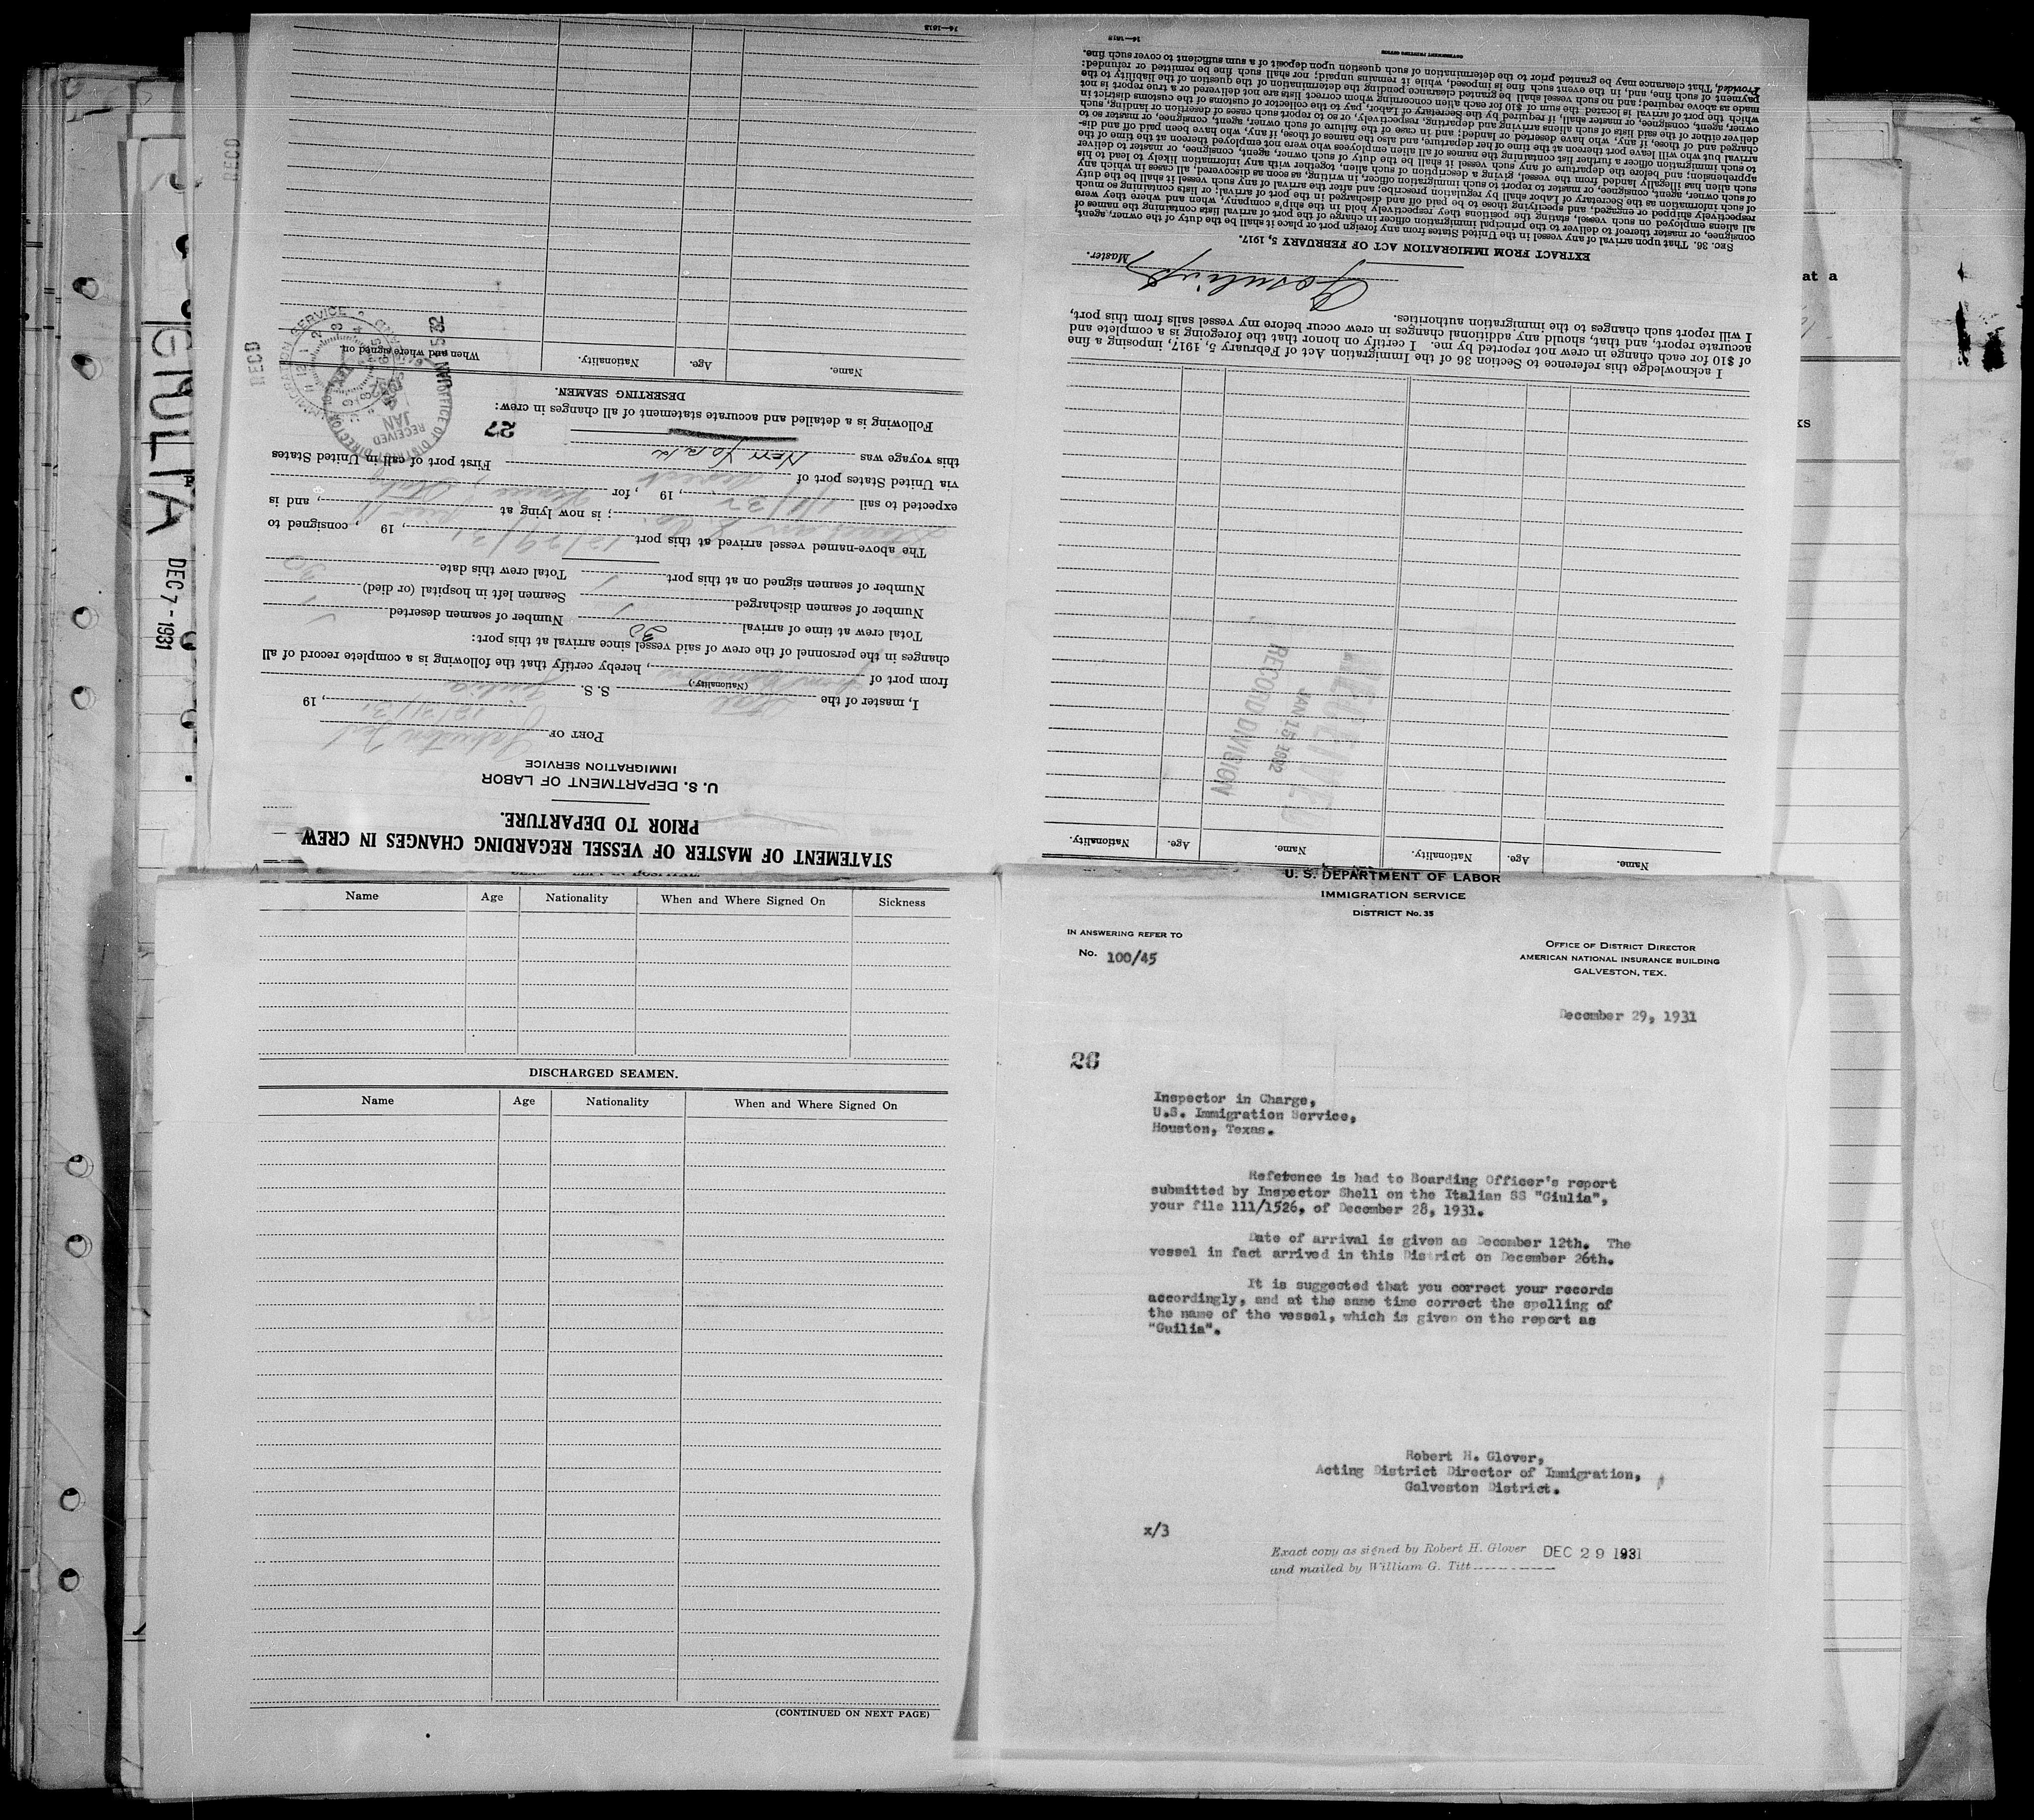 STATEMENT OF MASTER OF VESSEL REGARDING CHANGES IN CREW
PRIOR TO DEPARTURE.
U. S. DEPARTMENT OF LABOR
IMMIGRATION SERVICE
PORT OF Galveston Tex 12/31/31, 19
I, master of the Ital (Nationality.) S. S. Giulia
from port of , hereby certify that the following is a complete record of all
changes in the personnel of the crew of said vessel since arrival at this port:
Total crew at time of arrival 30 Number of seamen deserted
Number of seamen discharged Seamen left in hospital (or died)
Number of seamen signed on at this port Total crew this date 30
The above-named vessel arrived at this port 12/29/31, 19 , consigned to
; is now lying at , and is
expected to sail , 19 , for , Italy
via United States port of direct First port of call in United States
this voyage was New York
27
Following is a detailed and accurate statement of all changes in crew:
DESERTING SEAMEN.
Name. Age. Nationality. When and where signed on.
OFFICE OF DISTRICT DIRECTOR
RECEIVED
JAN
1932
IMMIGRATION SERVICE
RECD
RECD
14—1818
Name. Age. Nationality. Name. Age. Nationality.
RECEIVED
JAN 15 1932
RECORD DIVISION
I acknowledge this reference to Section 36 of the Immigration Act of February 5, 1917, imposing a fine
of $10 for each change in crew not reported by me. I certify on honor that the foregoing is a complete and
accurate report, and that, should any additional changes in crew occur before my vessel sails from this port,
I will report such changes to the immigration authorities.
Master.
EXTRACT FROM IMMIGRATION ACT OF FEBRUARY 5, 1917.
SEC. 36. That upon arrival of any vessel in the United States from any foreign port or place it shall be the duty of the owner, agent,
consignee, or master thereof to deliver to the principal immigration officer in charge of the port of arrival lists containing the names of
all aliens employed on such vessel, stating the positions they respectively hold in the ship's company, when and where they were
respectively shipped or engaged, and specifying those to be paid off and discharged in the port of arrival; or lists containing so much
of such information as the Secretary of Labor shall by regulation prescribe; and after the arrival of any such vessel it shall be the duty
of such owner, agent, consignee, or master to report to such immigration officer, in writing, as soon as discovered, all cases in which any
such alien has illegally landed from the vessel, giving a description of such alien, together with any information likely to lead to his
apprehension; and before the departure of any such vessel it shall be the duty of such owner, agent, consignee, or master to deliver
to such immigration officer a further list containing the names of all alien employees who were not employed thereon at the time of the
arrival but who will leave port thereon at the time of her departure, and also the names of those, if any, who have been paid off and dis-
charged and of those, if any, who have deserted or landed; and in case of the failure of such owner, agent, consignee, or master so to
deliver either of the said lists of such aliens arriving and departing, respectively, or so to report such cases of desertion or landing, such
owner, agent, consignee, or master shall, if required by the Secretary of Labor, pay to the collector of customs of the customs district in
which the port of arrival is located the sum of $10 for each alien concerning whom correct lists are not delivered or a true report is not
made as above required; and no such vessel shall be granted clearance pending the determination of the question of the liability to the
payment of such fine, and, in the event such fine is imposed, while it remains unpaid; nor shall such fine be remitted or refunded:
Provided, That clearance may be granted prior to the determination of such question upon deposit of a sum sufficient to cover such fine.
GOVERNMENT PRINTING OFFICE
14—1818
GIULIA
DEC 7 - 1931
at a
ks
Name Age Nationality When and Where Signed On Sickness
DISCHARGED SEAMEN.
Name Age Nationality When and Where Signed On
(CONTINUED ON NEXT PAGE)
U. S. DEPARTMENT OF LABOR
IMMIGRATION SERVICE
DISTRICT No. 35
IN ANSWERING REFER TO
No. 100/45
OFFICE OF DISTRICT DIRECTOR
AMERICAN NATIONAL INSURANCE BUILDING
GALVESTON, TEX.
December 29, 1931
26
Inspector in Charge,
U.S. Immigration Service,
Houston, Texas.
Reference is had to Boarding Officer's report
submitted by Inspector Shell on the Italian SS "Giulia",
your file 111/1526, of December 28, 1931.
Date of arrival is given as December 12th. The
vessel in fact arrived in this District on December 26th.
It is suggested that you correct your records
accordingly, and at the same time correct the spelling of
the name of the vessel, which is given on the report as
"Guilia".
Robert H. Glover,
Acting District Director of Immigration,
Galveston District.
x/3
Exact copy as signed by Robert H. Glover DEC 29 1931
and mailed by William G. Titt